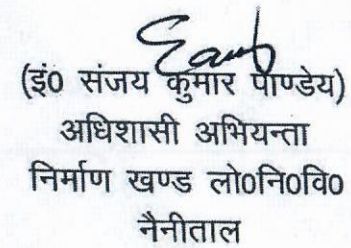 (इं0 संजय कुमार पाण्डेय)
अधिशासी अभियन्ता
निर्माण खण्ड लो0नि0वि0
नैनीताल